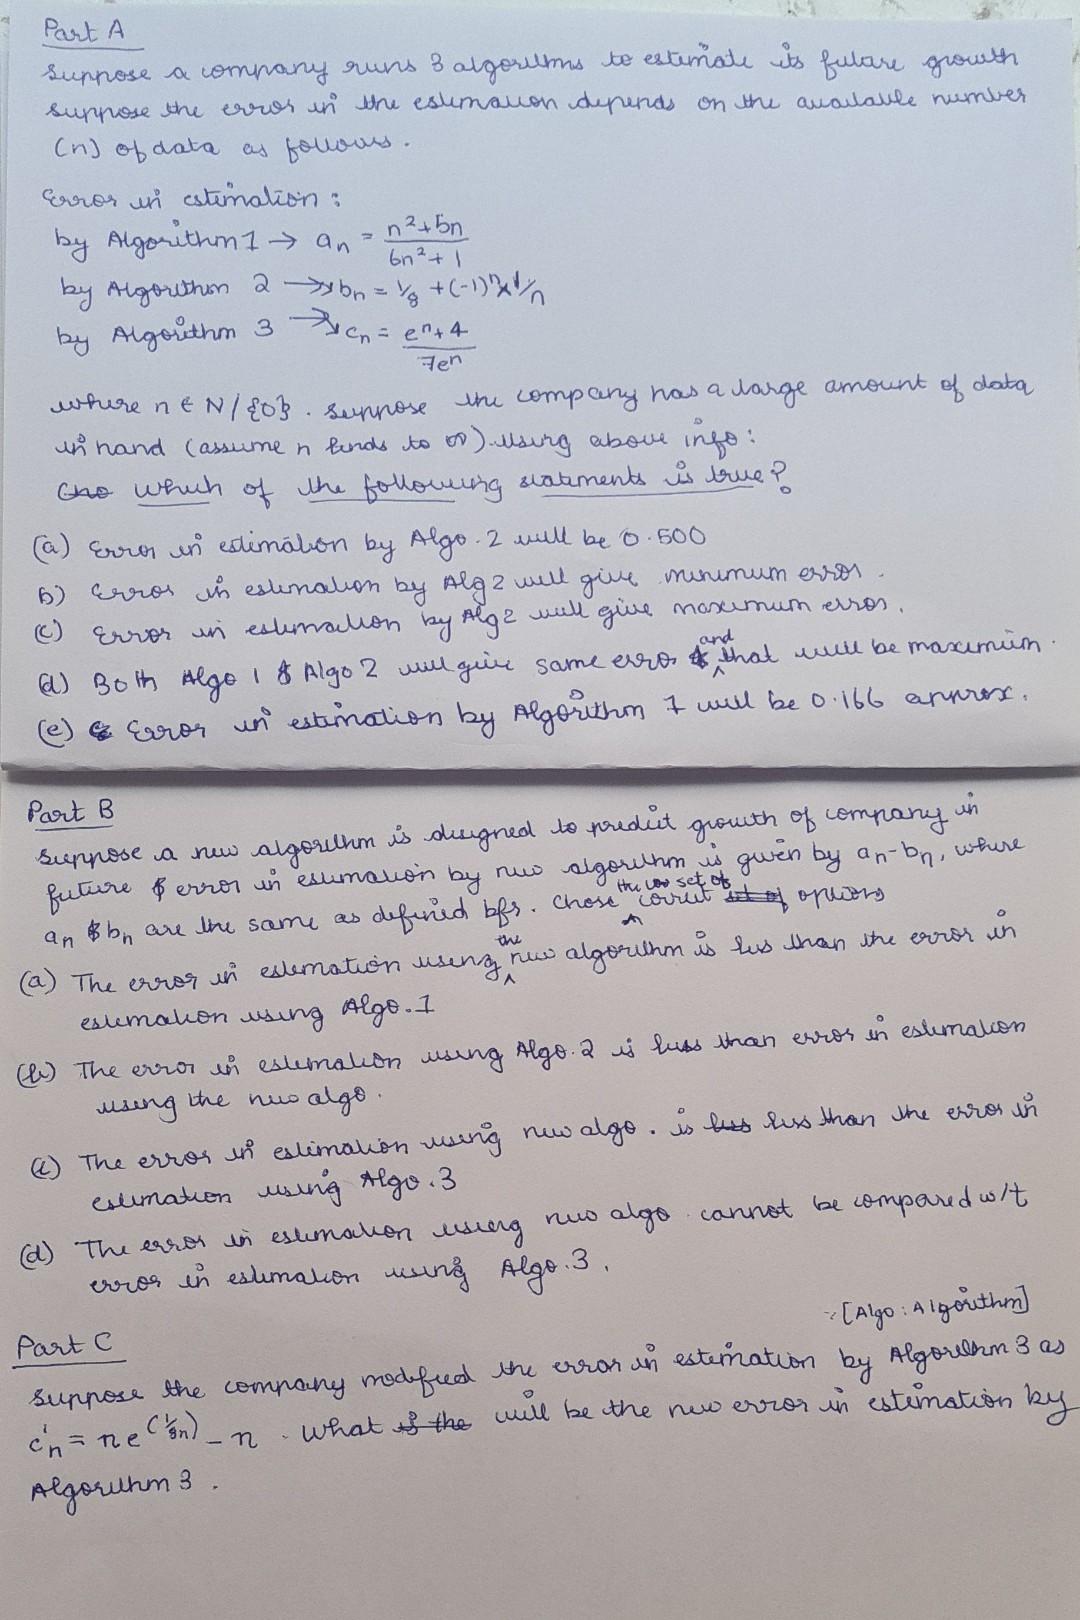 Part A
Suppose a company runs 3 algorithms to estimate its future growth
suppose the error in the estimation depends on the available number
(n) of data as follows.
Error in estimation :
by Algorithm 1 → an = n²+5n / 6n²+1
by Algorithm 2 → bn = 1/8 + (-1)ⁿ x 1/n
by Algorithm 3 → cn = eⁿ+4 / 7eⁿ
where n ∈ N/{0}. Suppose the company has a large amount of data
in hand (assume n tends to ∞). Using above info:
which of the following statements is true?
(a) Error in estimation by Algo.2 will be 0.500
b) Error in estimation by Alg 2 will give minimum error.
(c) Error in estimation by Alg 2 will give maximum error.
(d) Both Algo 1 & Algo 2 will give same error and that will be maximum.
(e) Error in estimation by Algorithm 1 will be 0.166 approx.
Part B
Suppose a new algorithm is designed to predict growth of company in
future & error in estimation by new algorithm is given by an-bn, where
an & bn are the same as defined bfr. Chose the correct set of options
(a) The error in estimation using the new algorithm is less than the error in
estimation using Algo.1
(b) The error in estimation using Algo.2 is less than error in estimation
using the new algo.
(c) The error in estimation using new algo. is less than the error in
estimation using Algo.3
(d) The error in estimation using new algo cannot be compared w/t
error in estimation using Algo.3.
[Algo : Algorithm]
Part C
Suppose the company modified the error in estimation by Algorithm 3 as
c'n = n e^(1/8n) - n. What will be the new error in estimation by
Algorithm 3.